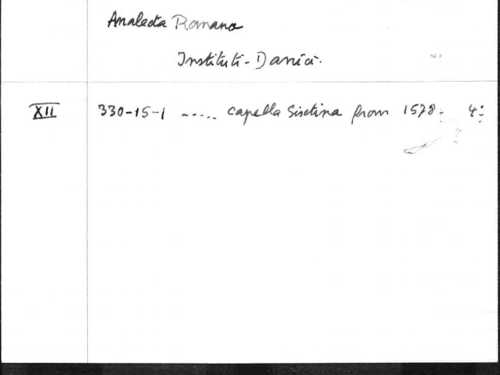 Analecta Romana
Instituti-Danici.
XII 330-15-1 ..... Capella Sisctina from 1578. 4: